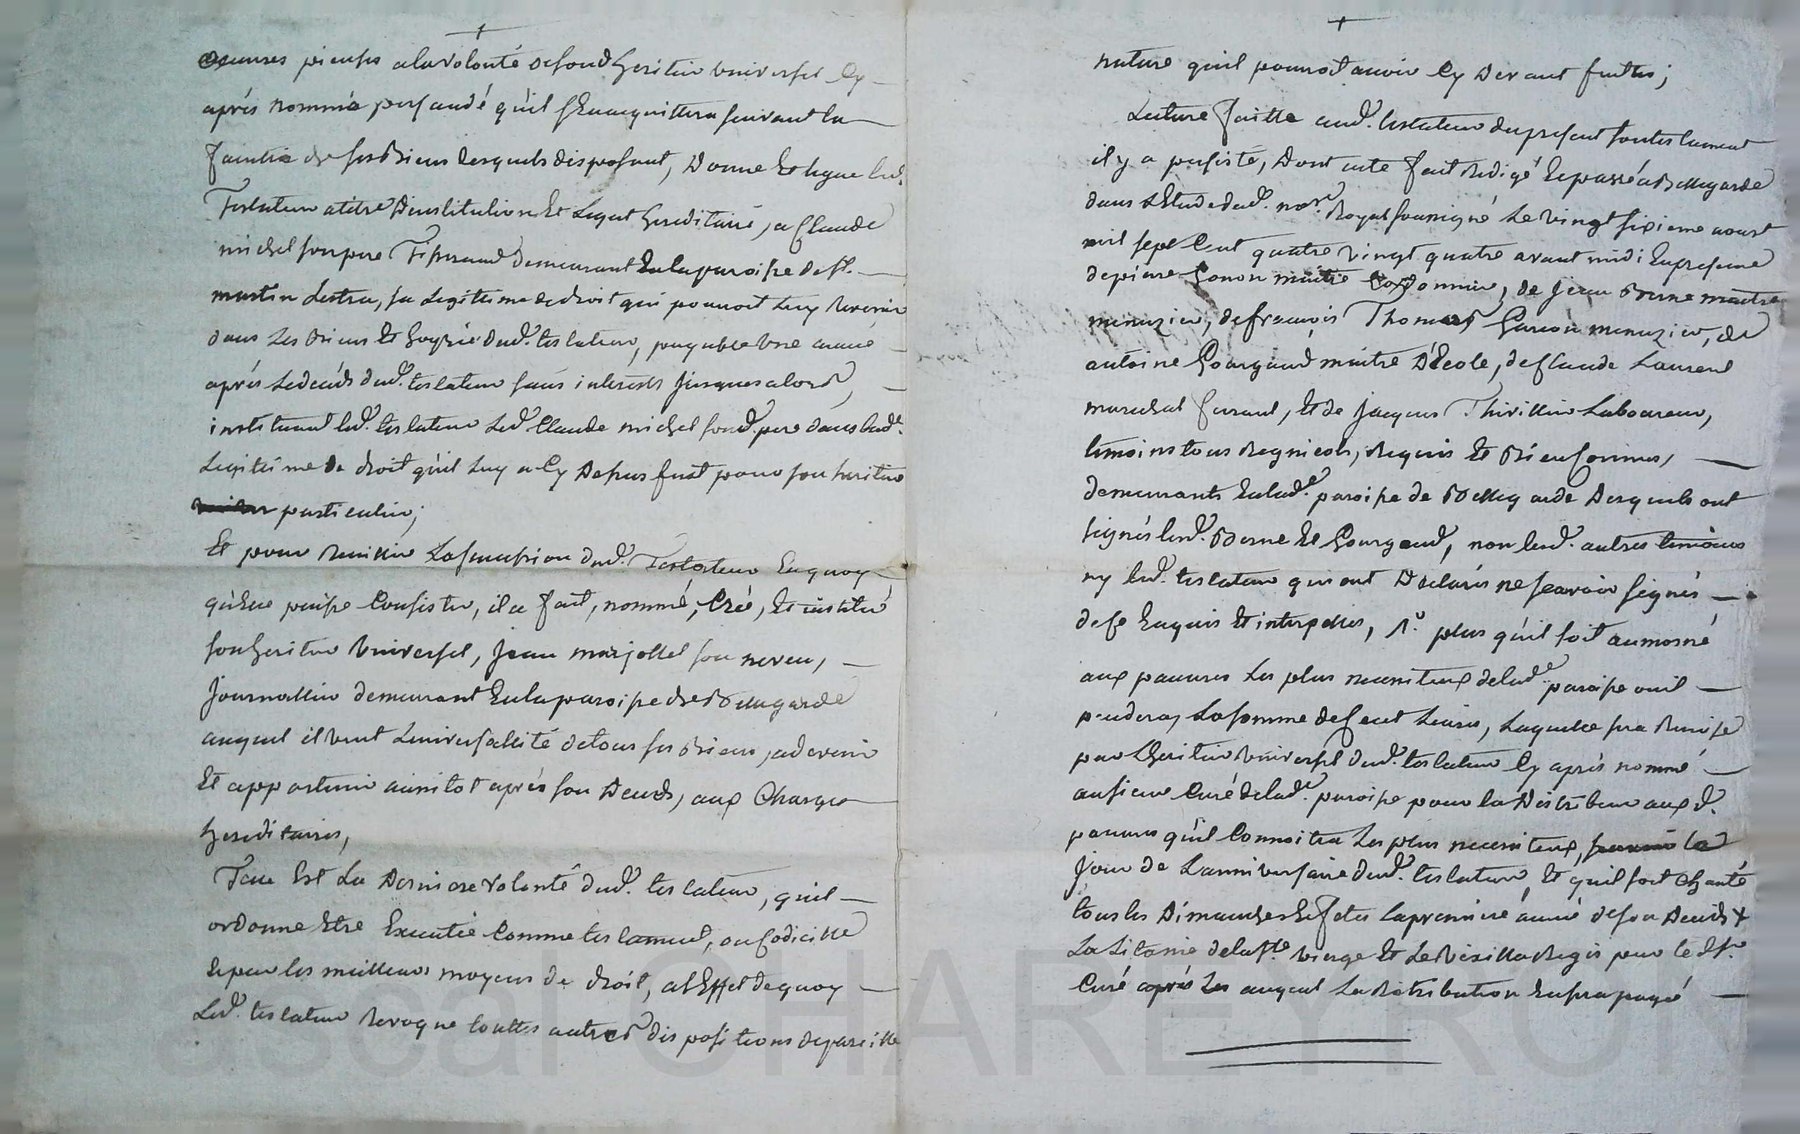 +
œuvres pieuses a la volonté de son d heritier universel Cy
après nommée persuadé qu'il s'En acquittera suivant la
de ses Biens lesquels disposant, Donne Et legue led.
Testateur a titre D'institution Et Legat hereditaire, a Claude
michel son pere Tisserand demeurant En la paroisse de St.
martin Lestra, sa Legitime de droit qui pouroit Luy Revenir
dans Les Biens Et hoyrie dud. testateur, payable Une année
après Le decéds dud. testateur sans interests jusques alors,
instituant led. testateur Led. Claude michel son d. pere dans lad.
Legitime de droit qu'il Luy a Cy Dessus fait pour son heritier
particulier;
Et pour Recuillir La succession dud. Testateur En quoy
qu'Elle puisse Consister, il a fait, nommé, Créé, Et institué
son heritier Universel, Jean marjollet son neveu,
Journallier demeurant En la paroisse de Bellegarde
auquel il veut L'universallité de tous ses Biens, advenir
Et appartenir aussitot après son Decéds, aux Charges
hereditaires,
Telle Est La Derniere volonté dud. testateur, qu'il
ordonne Etre Executée Comme testament, ou Codicille
Et par les meilleurs moyens de droit, a l'Effet de quoy
Led. testateur Revoque touttes autres dispositions de pareille
+
nature qu'il pouroit avoir Cy Devant faittes;
Lecture faitte aud. testateur du present testament
il y a persisté, Dont acte fait Redigé Et passé a Bellegarde
dans L'Etude dud. nore. Royal soussigné Le vingt sixieme aoust
mil sept Cent quatre vingt quatre avant midi En presence
de pierre Conon maitre Cordonnier, de Jean Berne maitre
menuzier, de françois Thomas Garcon menuzier, de
antoine Gourgaud maitre D'Ecole, de Claude Laurent
marechal ferrant, Et de Jacques Thivillier Laboureur,
temoins tous Regnicols, Requis Et Bien Connus,
demeurants En lad. paroisse de Bellegarde Desquels ont
signés lesd. Berne Et Gourgaud, non lesd. autres temoins
ny led. testateur qui ont Declarés ne scavoir signés
de ce Enquis Et interpellés, plus qu'il soit aumosné
aux pauvres Les plus necessiteux de lad. paroisse
La somme de Cent Livres, Laquelle sera Remise
par L'heritier Universel dud. testateur Cy après nommé
au sieur Curé de lad. paroisse pour la Distribuer aux d.
pauvres qu'il Connoitra Les plus necessiteux,
jour de L'anniversaire dud. testateur, Et qu'il soit Chanté
tous les Dimanches Et fetes la premiere année de son Decéds +
La Litanie de la Ste. vierge Et Le Vexilla Regis par le d. Sr.
Curé après Les auquel La Retribution En sera payé